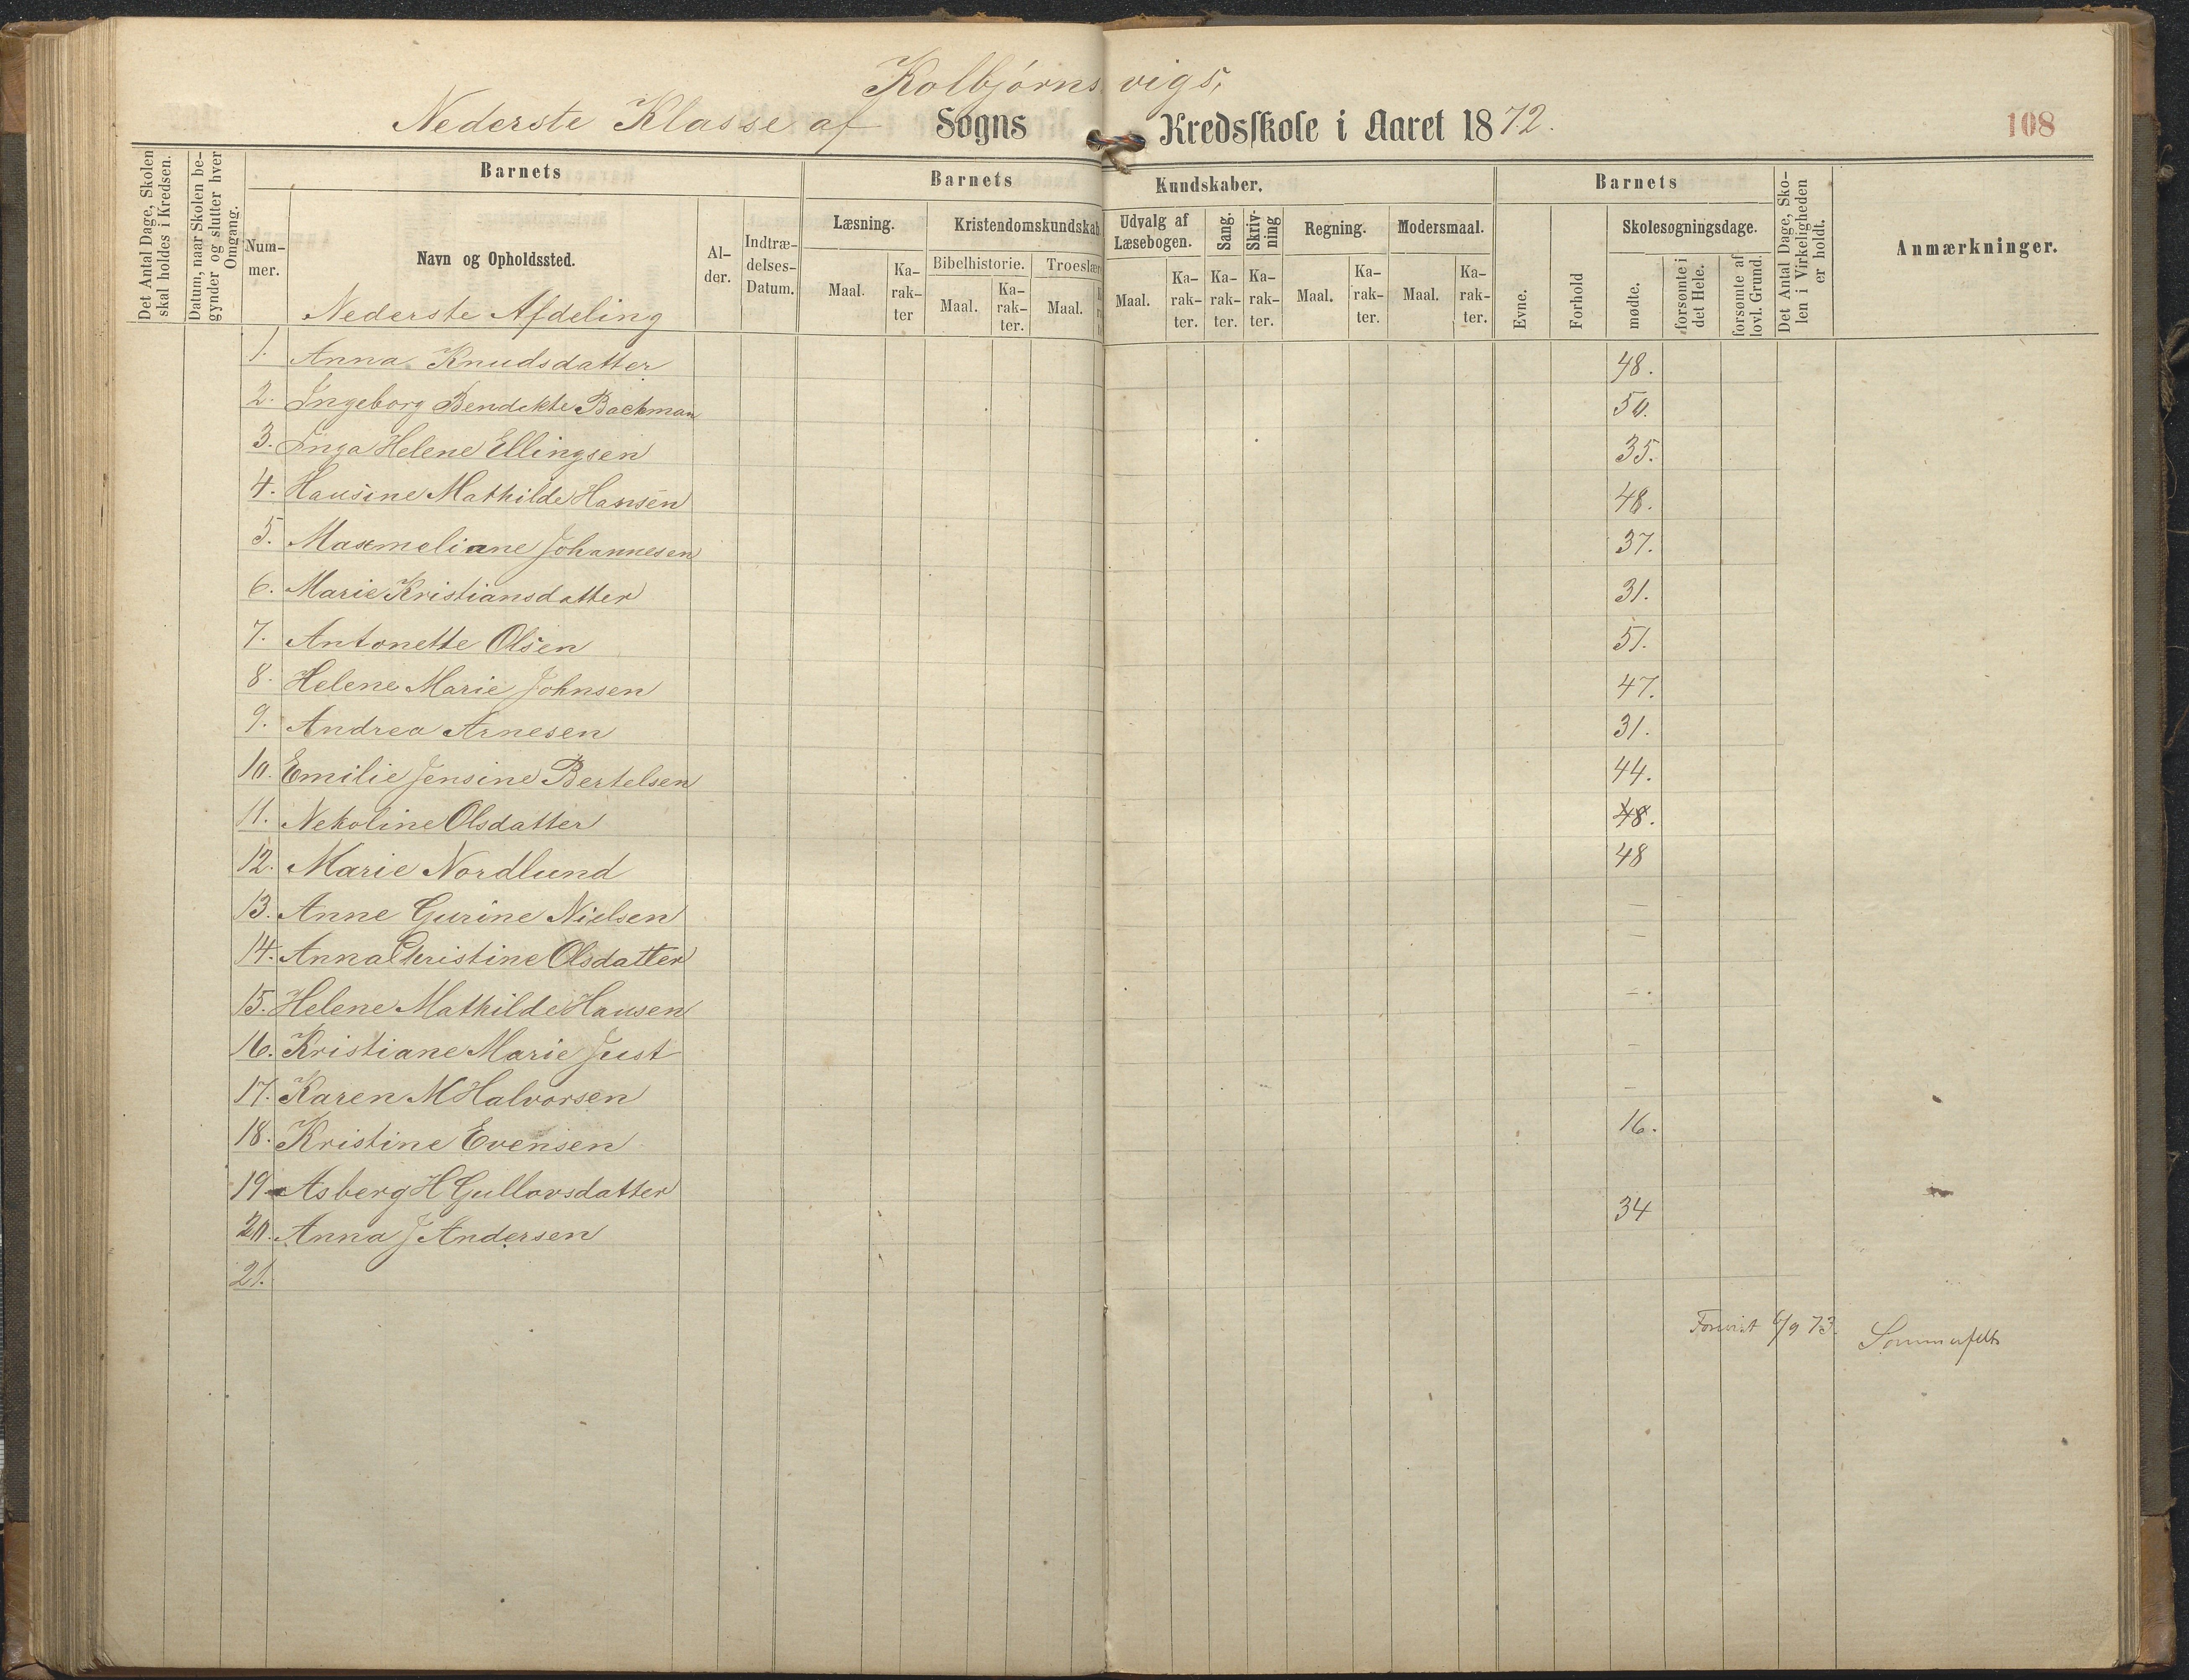 Kolbjørnsvigs,
Nederste Klasse af Sogns Kredsskole i Aaret 1872.
108
Det Antal Dage, Skolen skal holdes i Kredsen.
Datum, naar Skolen begynder og slutter hver Omgang.
Barnets
Barnets Kundskaber.
Barnets
Det Antal Dage, Skolen i Virkeligheden er holdt.
Anmærkninger.
Nummer.
Navn og Opholdssted.
Alder.
Indtrædelses-Datum.
Læsning.
Kristendomskundskab.
Udvalg af Læsebogen.
Sang.
Skrivning
Regning.
Modersmaal.
Evne.
Forhold
Skolesøgningsdage.
Bibelhistorie.
Troeslær
Maal.
Karakter
Maal.
Karakter.
Maal.
Maal.
Karakter.
Karakter.
Karakter.
Maal.
Karakter.
Maal.
Karakter.
mødte.
forsømte i det Hele.
forsømte af lovl. Grund.
Nederste Afdeling
1. Anna Knudsdatter 48.
2. Ingeborg Bendikte Backman 50.
3. Inga Helene Ellingsen 35.
4. Hansine Mathilde Hansen 48.
5. Maxmeliane Johannesen 37.
6. Marie Kristiansdatter 31.
7. Antonette Olsen 51.
8. Helene Marie Johnsen 47.
9. Andrea Arnesen 31.
10. Emilie Jensine Bertelsen 44.
11. Nekoline Olsdatter 48.
12. Marie Nordlund 48
13. Anne Gurine Nielsen —
14. Anna Christine Olsdatter —
15. Helene Mathilde Hansen —.
16. Kristiane Marie Just —
17. Karen M Halvorsen —
18. Kristine Evensen 16.
19. Asberg H Gullovsdatter
20. Anna J Andersen 34
21.
Forevist 6/9 73. Sommerfelt